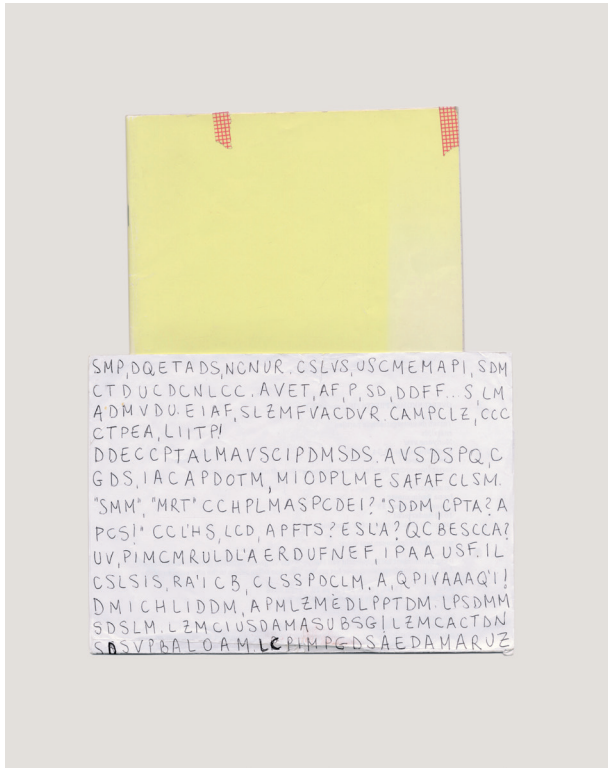 SMP,DQETADS,NCNUR.CSLVS,USCMEMAPI,SDM
CTDUCDCNLCC.AVET,AF,P,SD,DDFF...S,LM
ADMVDU.EIAF,SLZMFVACDVR.CAMPCLZ,CCC
CTPEA,LIITP!
DDECCPTALMAVSCIPDMSDS.AVSDSPQ,C
GDS,IACAPDOTM,MIODPLMESAFAFCLSM.
"SMM","MRT"CCHPLMASPCDEI?"SDDM,CPTA?A
PCS!"CCL'HS,LCD,APFTS?ESL'A?QCBESCCA?
UV,PIMCMRULDL'AERDUFNEF,IPAAUSF.IL
CSLSIS,RA'ICB,CLSSPDCLM.A,QPIVAAAQ'I!
DMICHLIDDM,APMLZMEDLPPTDM.LPSDMM
SDSLM.LZMCIUSDAMASUBSG!LZMCACTDN
SDSVPBALOAM.LCPIMPGDSAEDAMARUZ